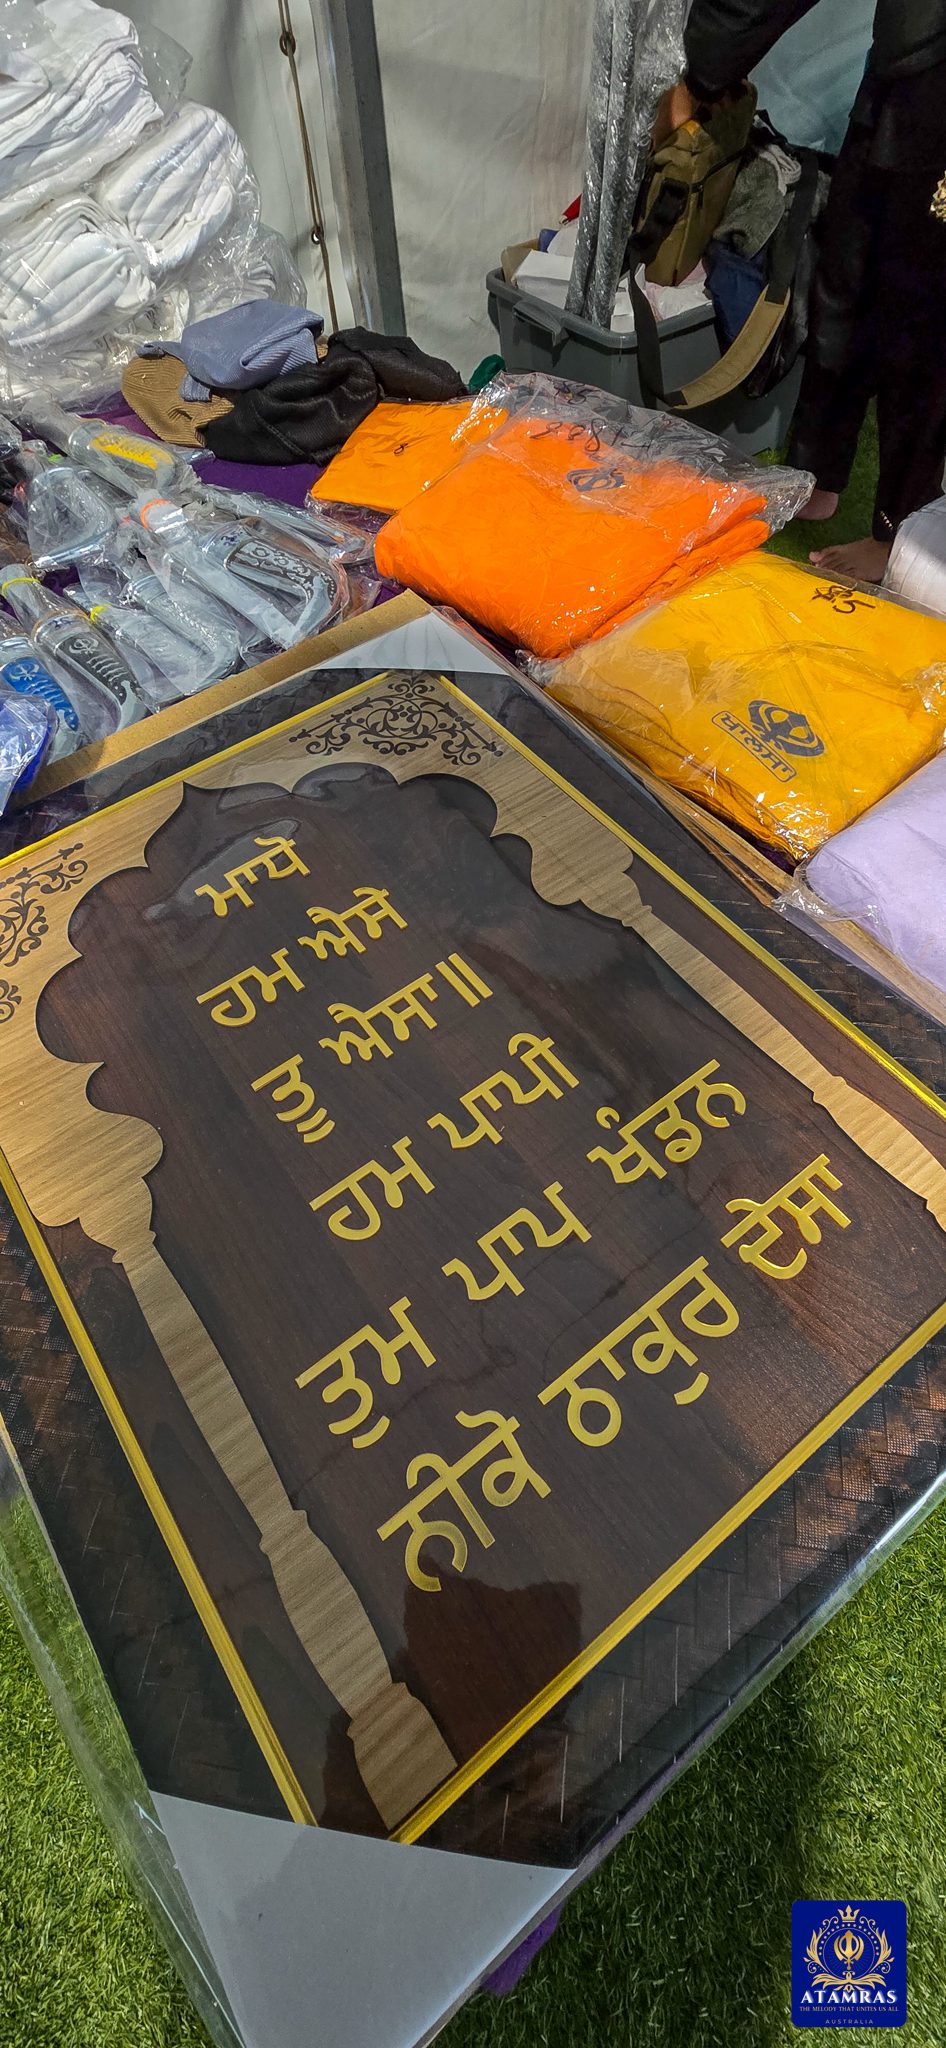 ਮਾਧੋ
ਹਮ ਐਸੇ
ਤੂ ਐਸਾ॥
ਹਮ ਪਾਪੀ
ਤੁਮ ਪਾਪ ਖੰਡਨ
ਨੀਕੋ ਠਾਕੁਰ ਦੇਸਾ
ATAMRAS
THE MELODY THAT UNITES US ALL
AUSTRALIA